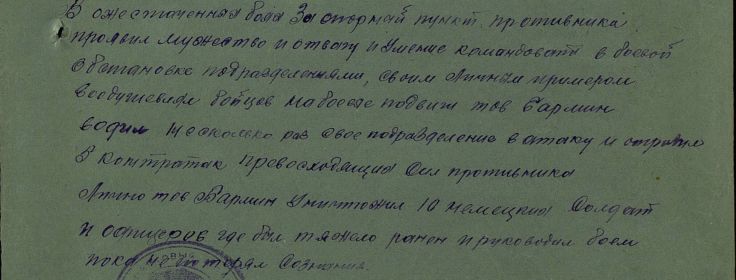 В ожесточенных боях За опорный пункт противника
проявил мужество и отвагу и умение командовать в боевой
Обстановке подразделениями, своим Личным примером
Воодушевлял бойцов на боевые подвиги тов Бармин
водил несколько раз свое подразделение в атаку и отразил
5 контратак Превосходящих Сил противника
Лично тов Бармин Уничтожил 10 немецких Солдат
и офицеров где был тяжело ранен и руководил боем
пока не потерял Сознания.